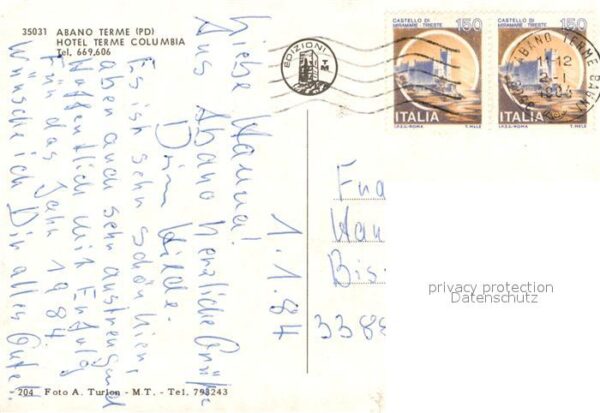 35031 ABANO TERME (PD)
HOTEL TERME COLUMBIA
Tel. 669.606
EDIZIONI
T M
CASTELLO DI
MIRAMARE-TRIESTE
150
ITALIA
I.P.Z.S.-ROMA T. MELE
CASTELLO DI
MIRAMARE-TRIESTE
150
ITALIA
I.P.Z.S.-ROMA T. MELE
ABANO TERME BAGNI
11-12
1.1.84
Liebe Hanna!
Aus Abano herzliche Grüße
Deine Hilde.
Es ist sehr schön hier,
aben auch sehr anstrengend
Hoffentlich mit Erfolg
Für das Jahr 1984
Wünsche ich Dir alles Gute!
Fra
Han
Bis
338
privacy protection
Datenschutz
204 Foto A. Turlon - M.T. - Tel. 798243